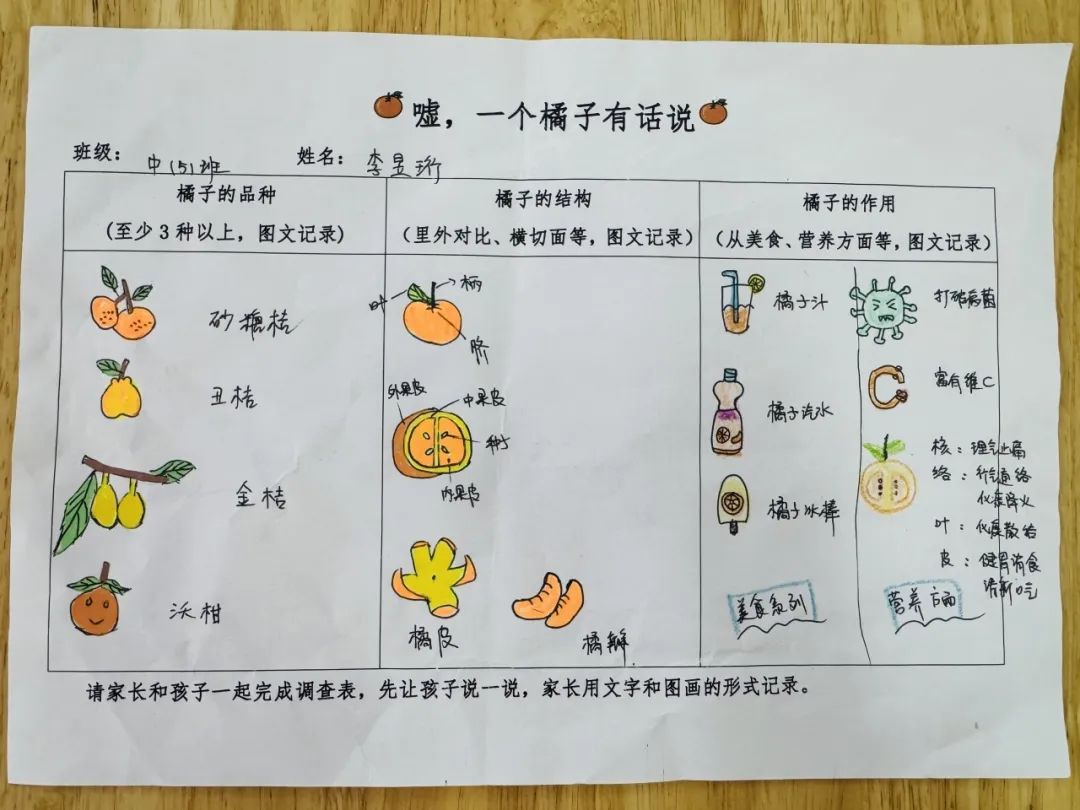 嘘，一个橘子有话说
班级：中(5)班 姓名：李昱珩
橘子的品种
(至少3种以上，图文记录)
砂糖桔
丑桔
金桔
沃柑
橘子的结构
(里外对比、横切面等，图文记录)
叶
柄
脐
外果皮
中果皮
种子
内果皮
橘皮
橘瓣
橘子的作用
(从美食、营养方面等，图文记录)
橘子汁
橘子汽水
橘子冰棒
美食系列
打破病菌
富有维C
核：理气止痛
络：行气通络
化痰降火
叶：化痰散结
皮：健胃消食
营养方面
请家长和孩子一起完成调查表，先让孩子说一说，家长用文字和图画的形式记录。